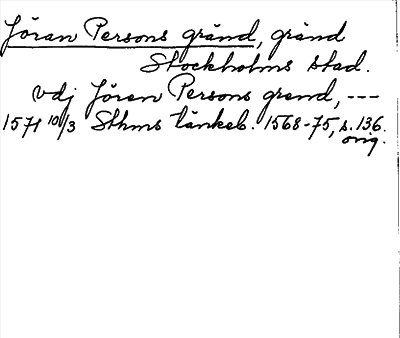 Jöran Persons gränd, gränd
Stockholms stad.
vdj Jören Persons grend, ---
1571 10/3 Sthms tänkeb. 1568-75, s. 136.
orig.